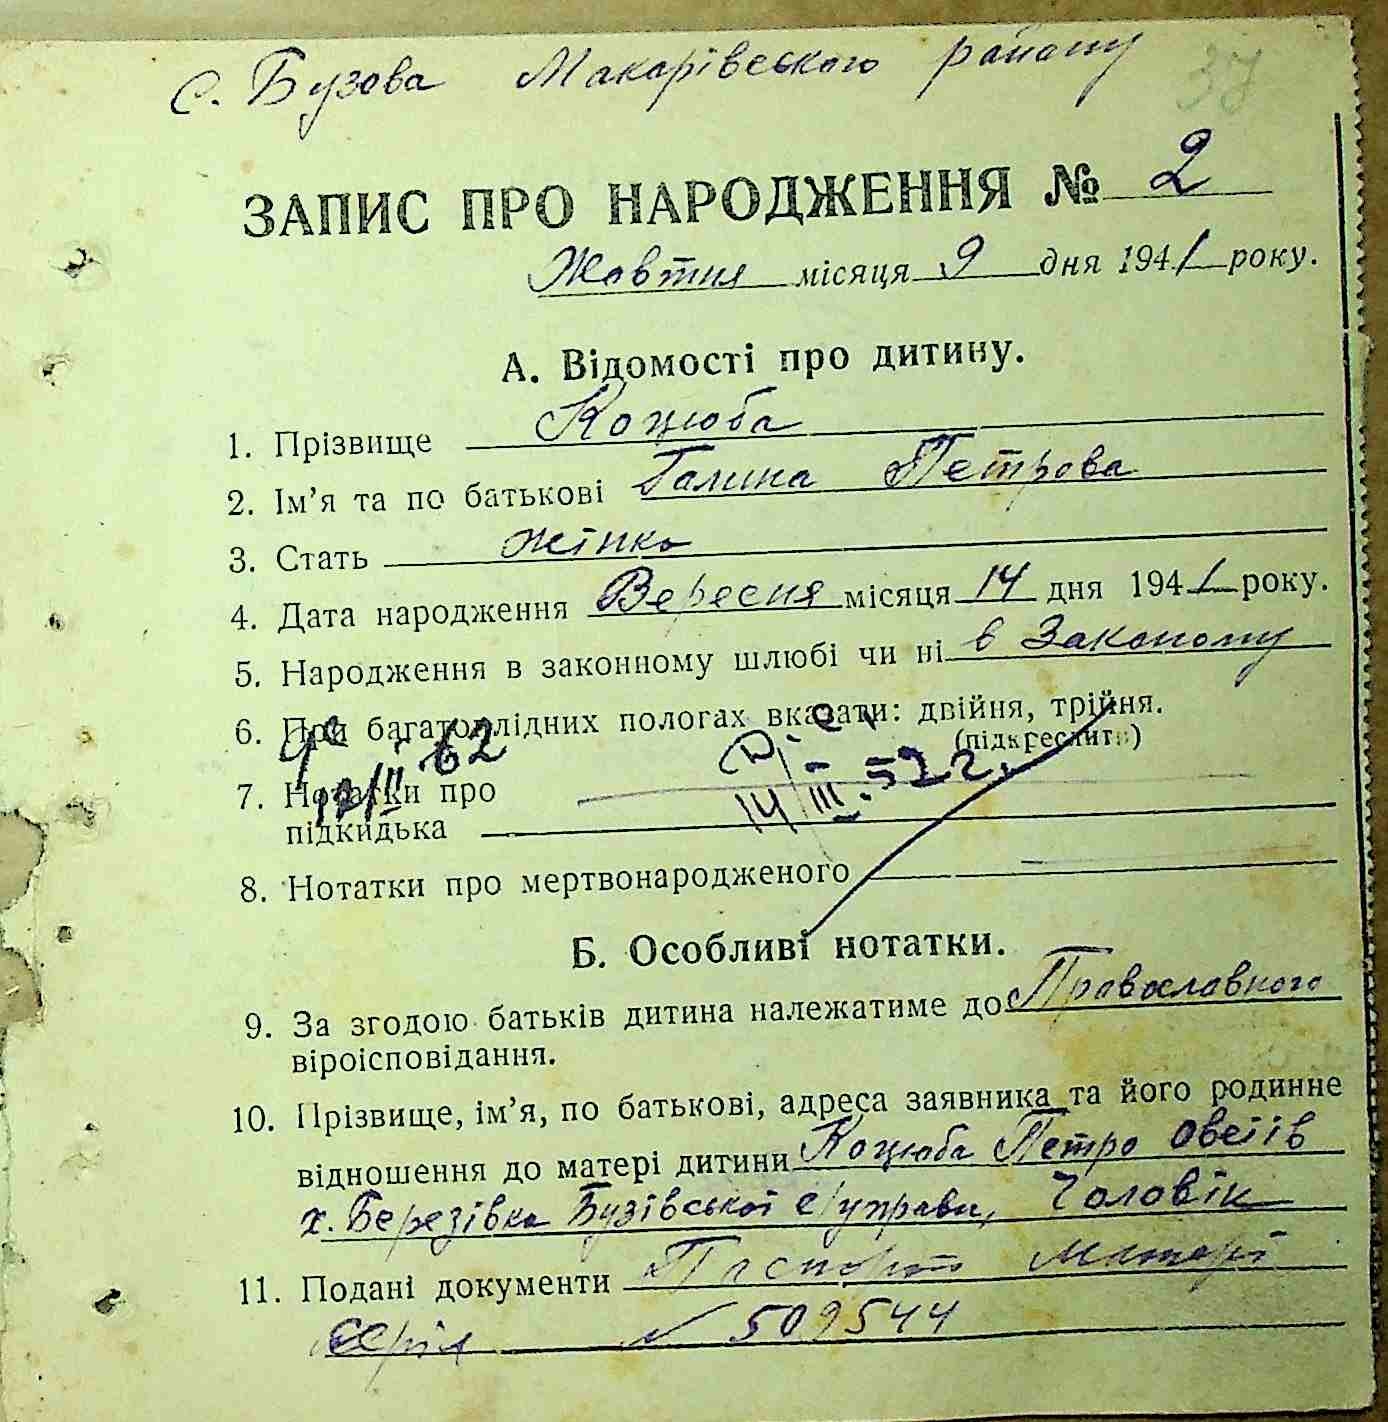 с. Бузова Макарівського району
37
ЗАПИС ПРО НАРОДЖЕННЯ № 2
Жовтня місяця 9 дня 1941 року.
А. Відомості про дитину.
1. Прізвище Коцюба
2. Ім'я та по батькові Галина Петрова
3. Стать жінка
4. Дата народження Вересня місяця 14 дня 1941 року.
5. Народження в законному шлюбі чи ні в Законому
6. При багатоплідних пологах вказати: двійня, трійня.
(підкреслити)
7. Нотатки про
підкидька
14/III-52 г.
12/II 62
8. Нотатки про мертвонародженого
Б. Особливі нотатки.
9. За згодою батьків дитина належатиме до Православного
віроісповідання.
10. Прізвище, ім'я, по батькові, адреса заявника та його родинне
відношення до матері дитини Коцюба Петро Овсіїв
х. Березівка Бузівської с/управи, Чоловік
11. Подані документи Паспорт Матері
Серія № 509544